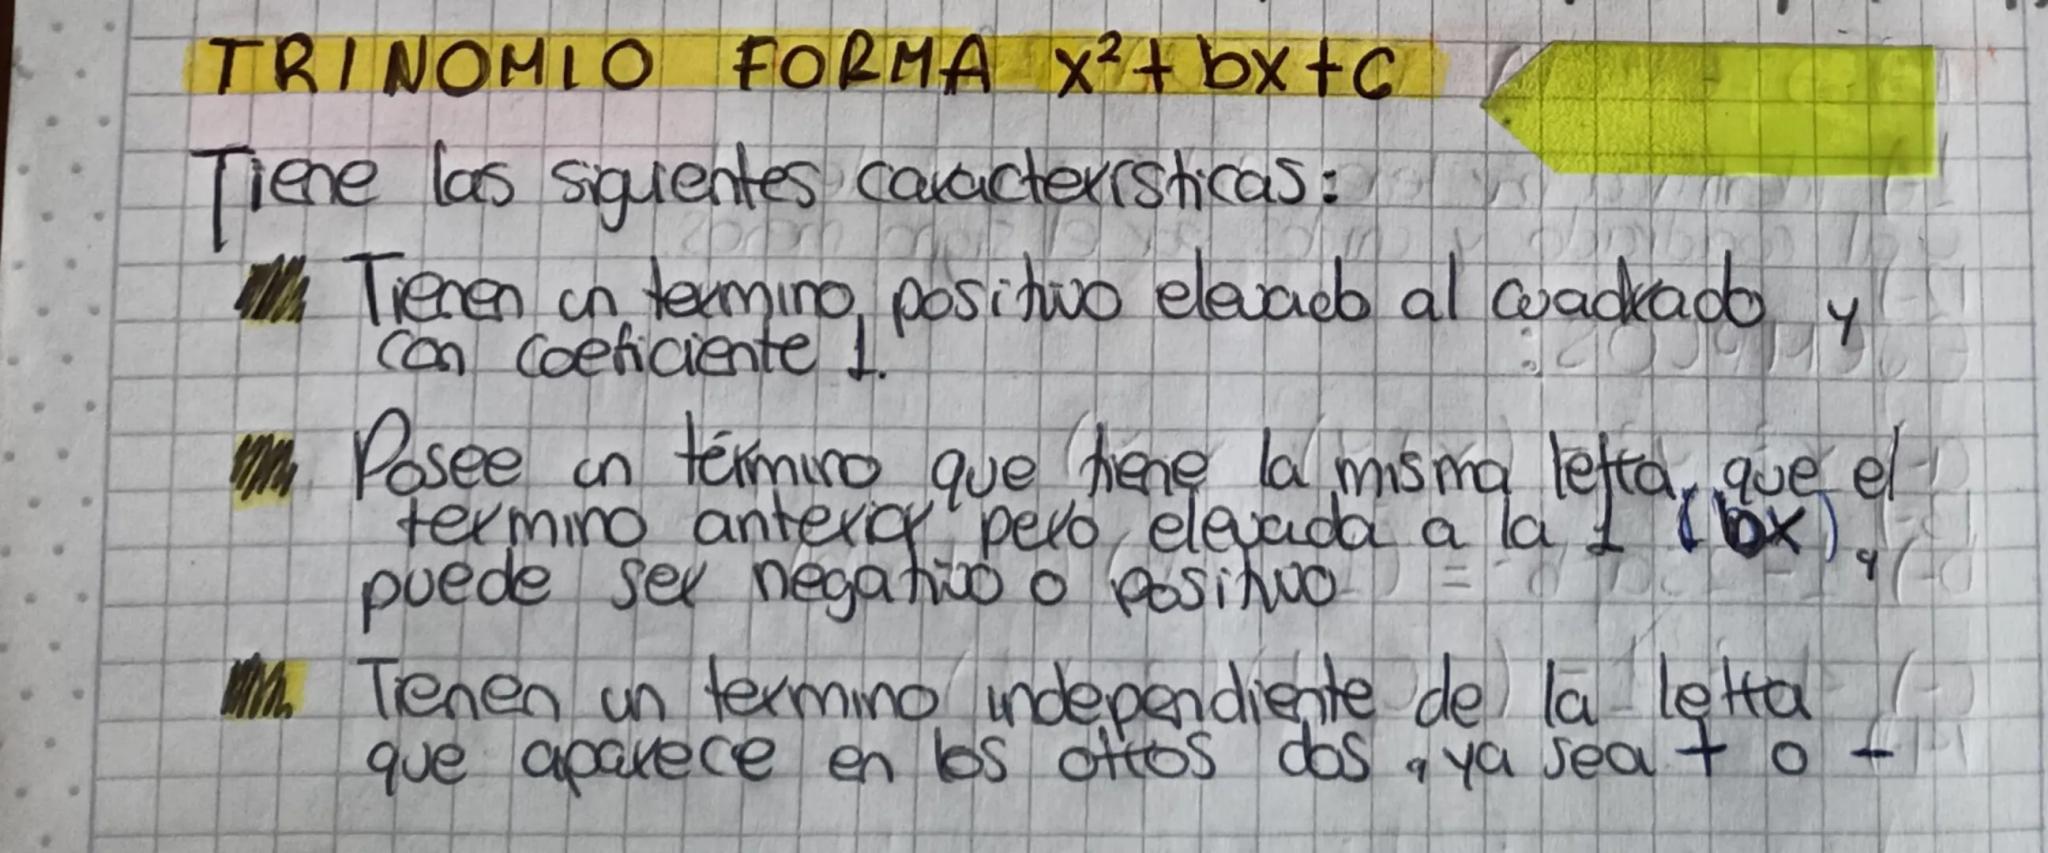 TRINOMIO FORMA x²+bx+c
Tiene las siguientes características:
Tienen un termino positivo elevado al cuadrado y
con coeficiente 1.
Posee un término que tiene la misma letra que el
termino anterior pero elevada a la 1 (bx),
puede ser negativo o positivo
Tienen un termino independiente de la letra
que aparece en los otros dos, ya sea + o -